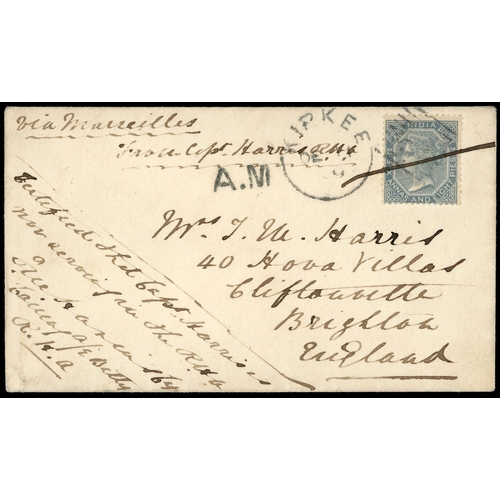 via Marseilles
From Capt Harris RHA
KIRKEE
DE
A.M
INDIA
ANNAS AND EIGHT PIES
Mrs T. M. Harris
40 Hova Villas
Cliftonville
Brighton
England
Certified that Capt Harris is
now serving in the RHA
R.H.A